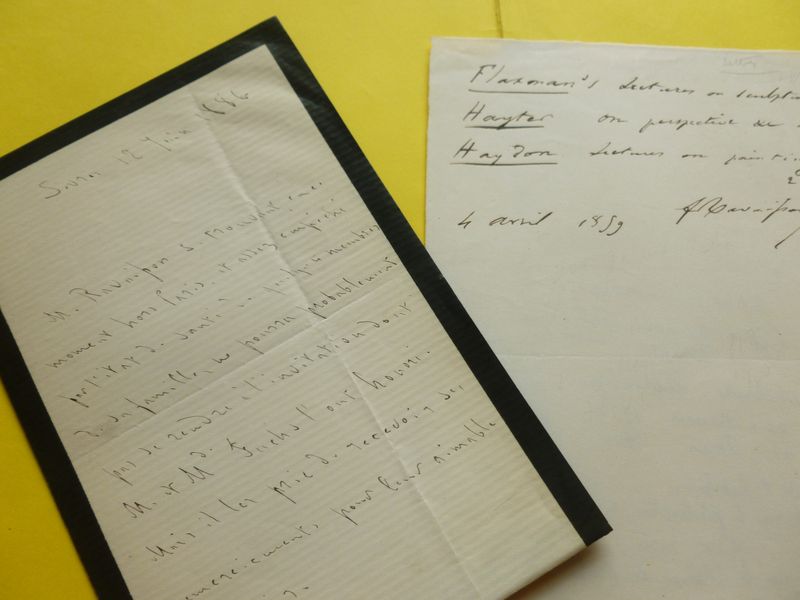 Sèvres 12 Juin 1886
M. Ravaisson se trouvant en ce
moment hors Paris, et assez empêché
par l'état de santé de quelques membres
de sa famille, ne pourra probablement
pas se rendre à l'invitation dont
M. et M Fuchs l'ont honoré.
Mais il les prie de recevoir ses
remerciements pour leur aimable
Flaxman's Lectures on sculptu
Hayter on perspective &c
Haydon Lectures on painti
4 avril 1859 FRavaisson